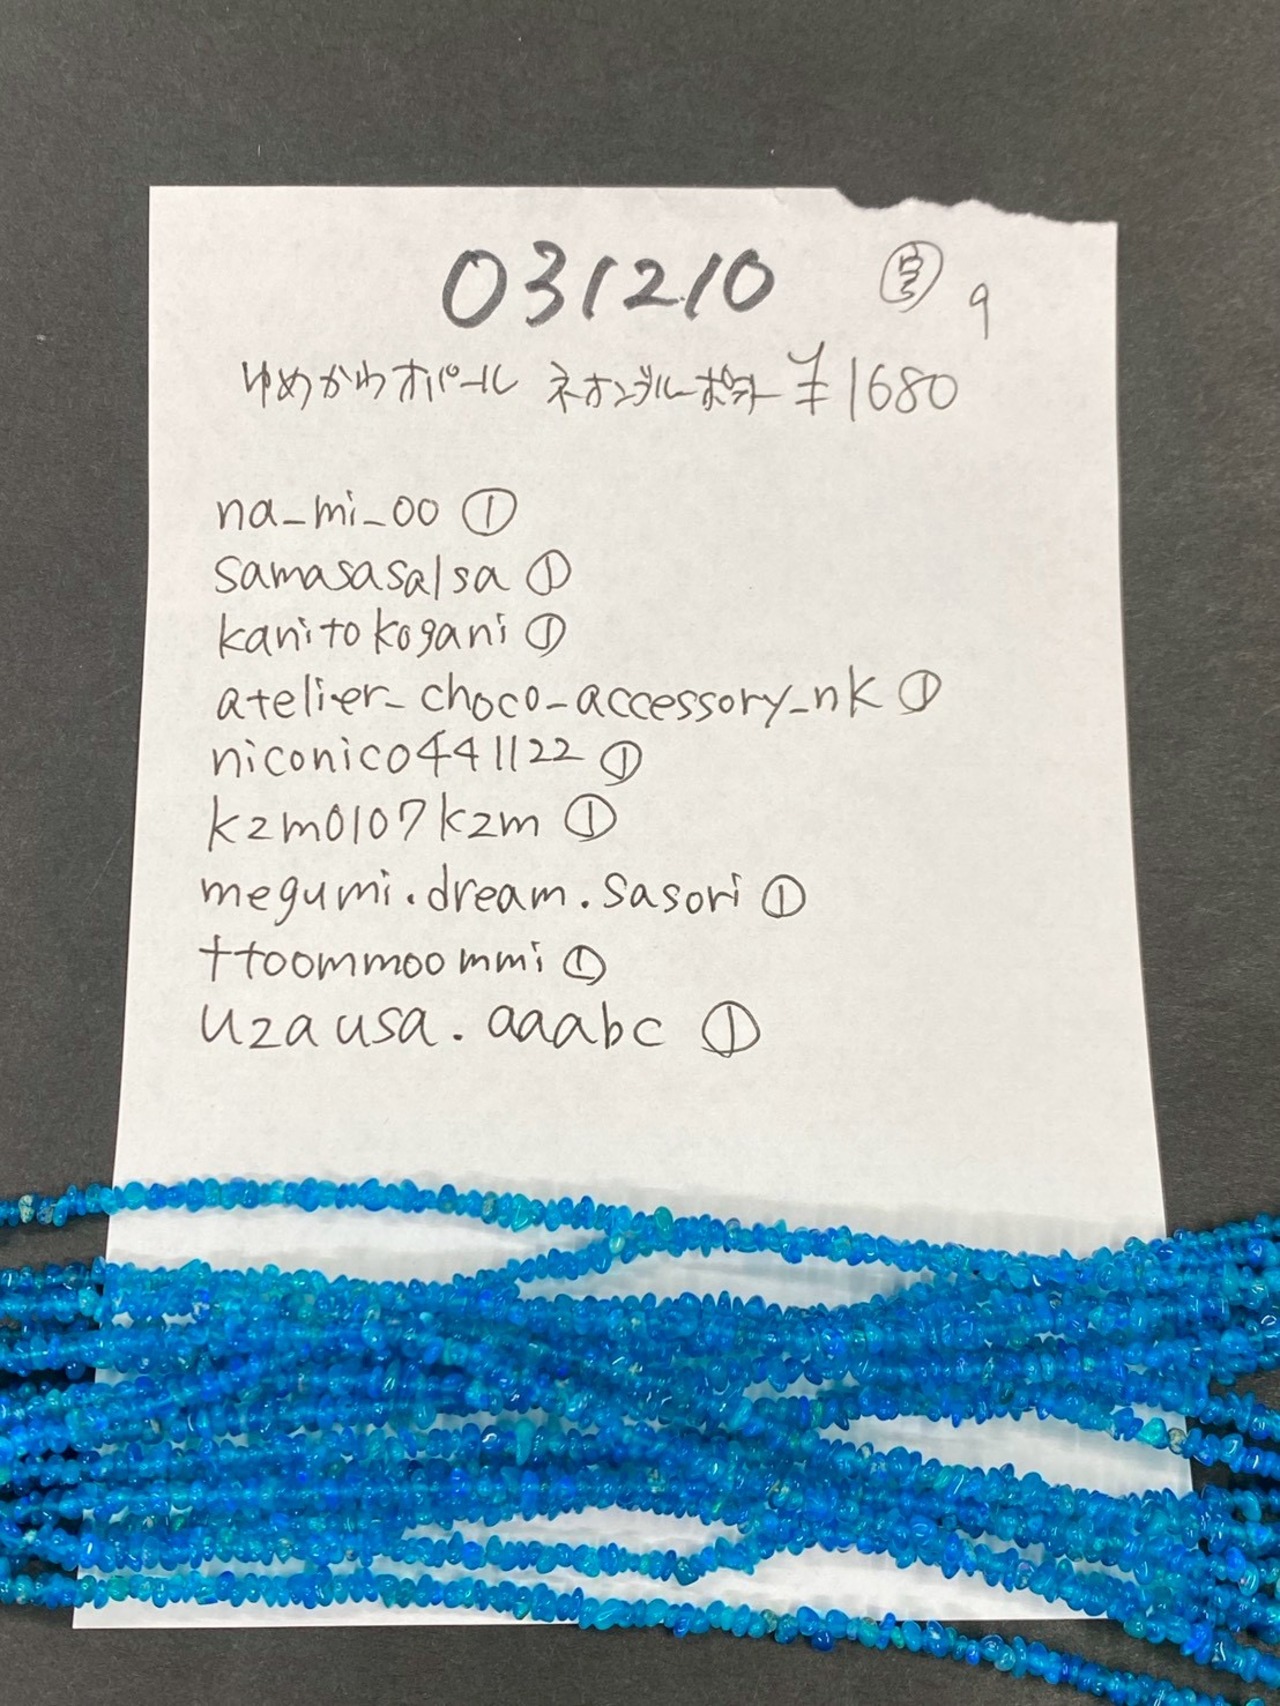 031210 9
ゆめかわオパール ネオンブルーポタトー ¥1680
na_mi_00 ①
samasasalsa ①
kanitokogani ①
atelier_choco_accessory_nk ①
niconico441122 ①
kzm0107kzm ①
megumi.dream.sasori ①
ttoommoommi ①
uzausa.aaabc ①